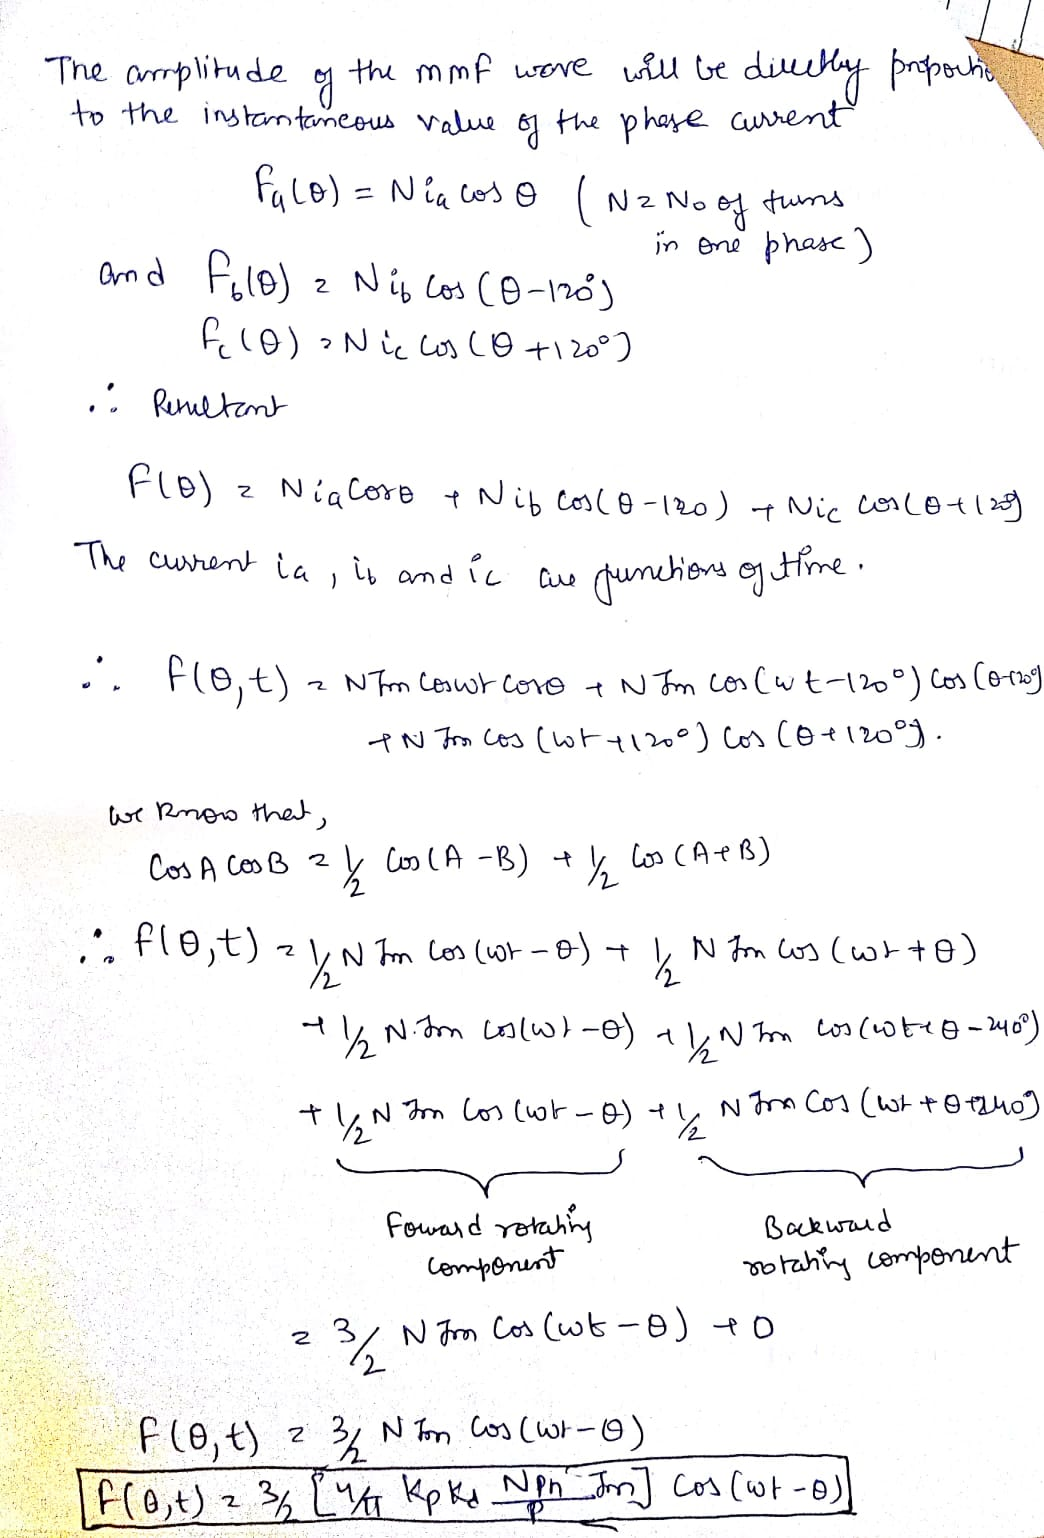 The amplitude of the mmf wave will be directly proportio
to the instantaneous value of the phase current
Fa(θ) = Nia cos θ ( N = No of turns
in one phase )
and Fb(θ) = Nib cos (θ-120°)
Fc(θ) = Nic cos (θ +120°)
∴ Resultant
F(θ) = Nia cosθ + Nib cos(θ-120) + Nic cos(θ+120)
The current ia , ib and ic are functions of time.
∴ F(θ,t) = N Im coswt cosθ + N Im cos (wt-120°) cos (θ-120°)
+ N Im cos (wt +120°) cos (θ+120°).
We know that,
Cos A cos B = 1/2 cos (A-B) + 1/2 cos (A+B)
∴ F(θ,t) = 1/2 N Im cos (wt-θ) + 1/2 N Im cos (wt+θ)
+ 1/2 N.Im cos(wt-θ) + 1/2 N Im cos (wt+θ-240°)
+ 1/2 N Im cos (wt-θ) + 1/2 N Im Cos (wt+θ+240°)
Foward rotating Backward
component rotating component
= 3/2 N Im Cos (wt-θ) + 0
F(θ,t) = 3/2 N Im Cos (wt-θ)
F(θ,t) = 3/2 [4/π Kp Kd Nph/P Im] cos (wt-θ)